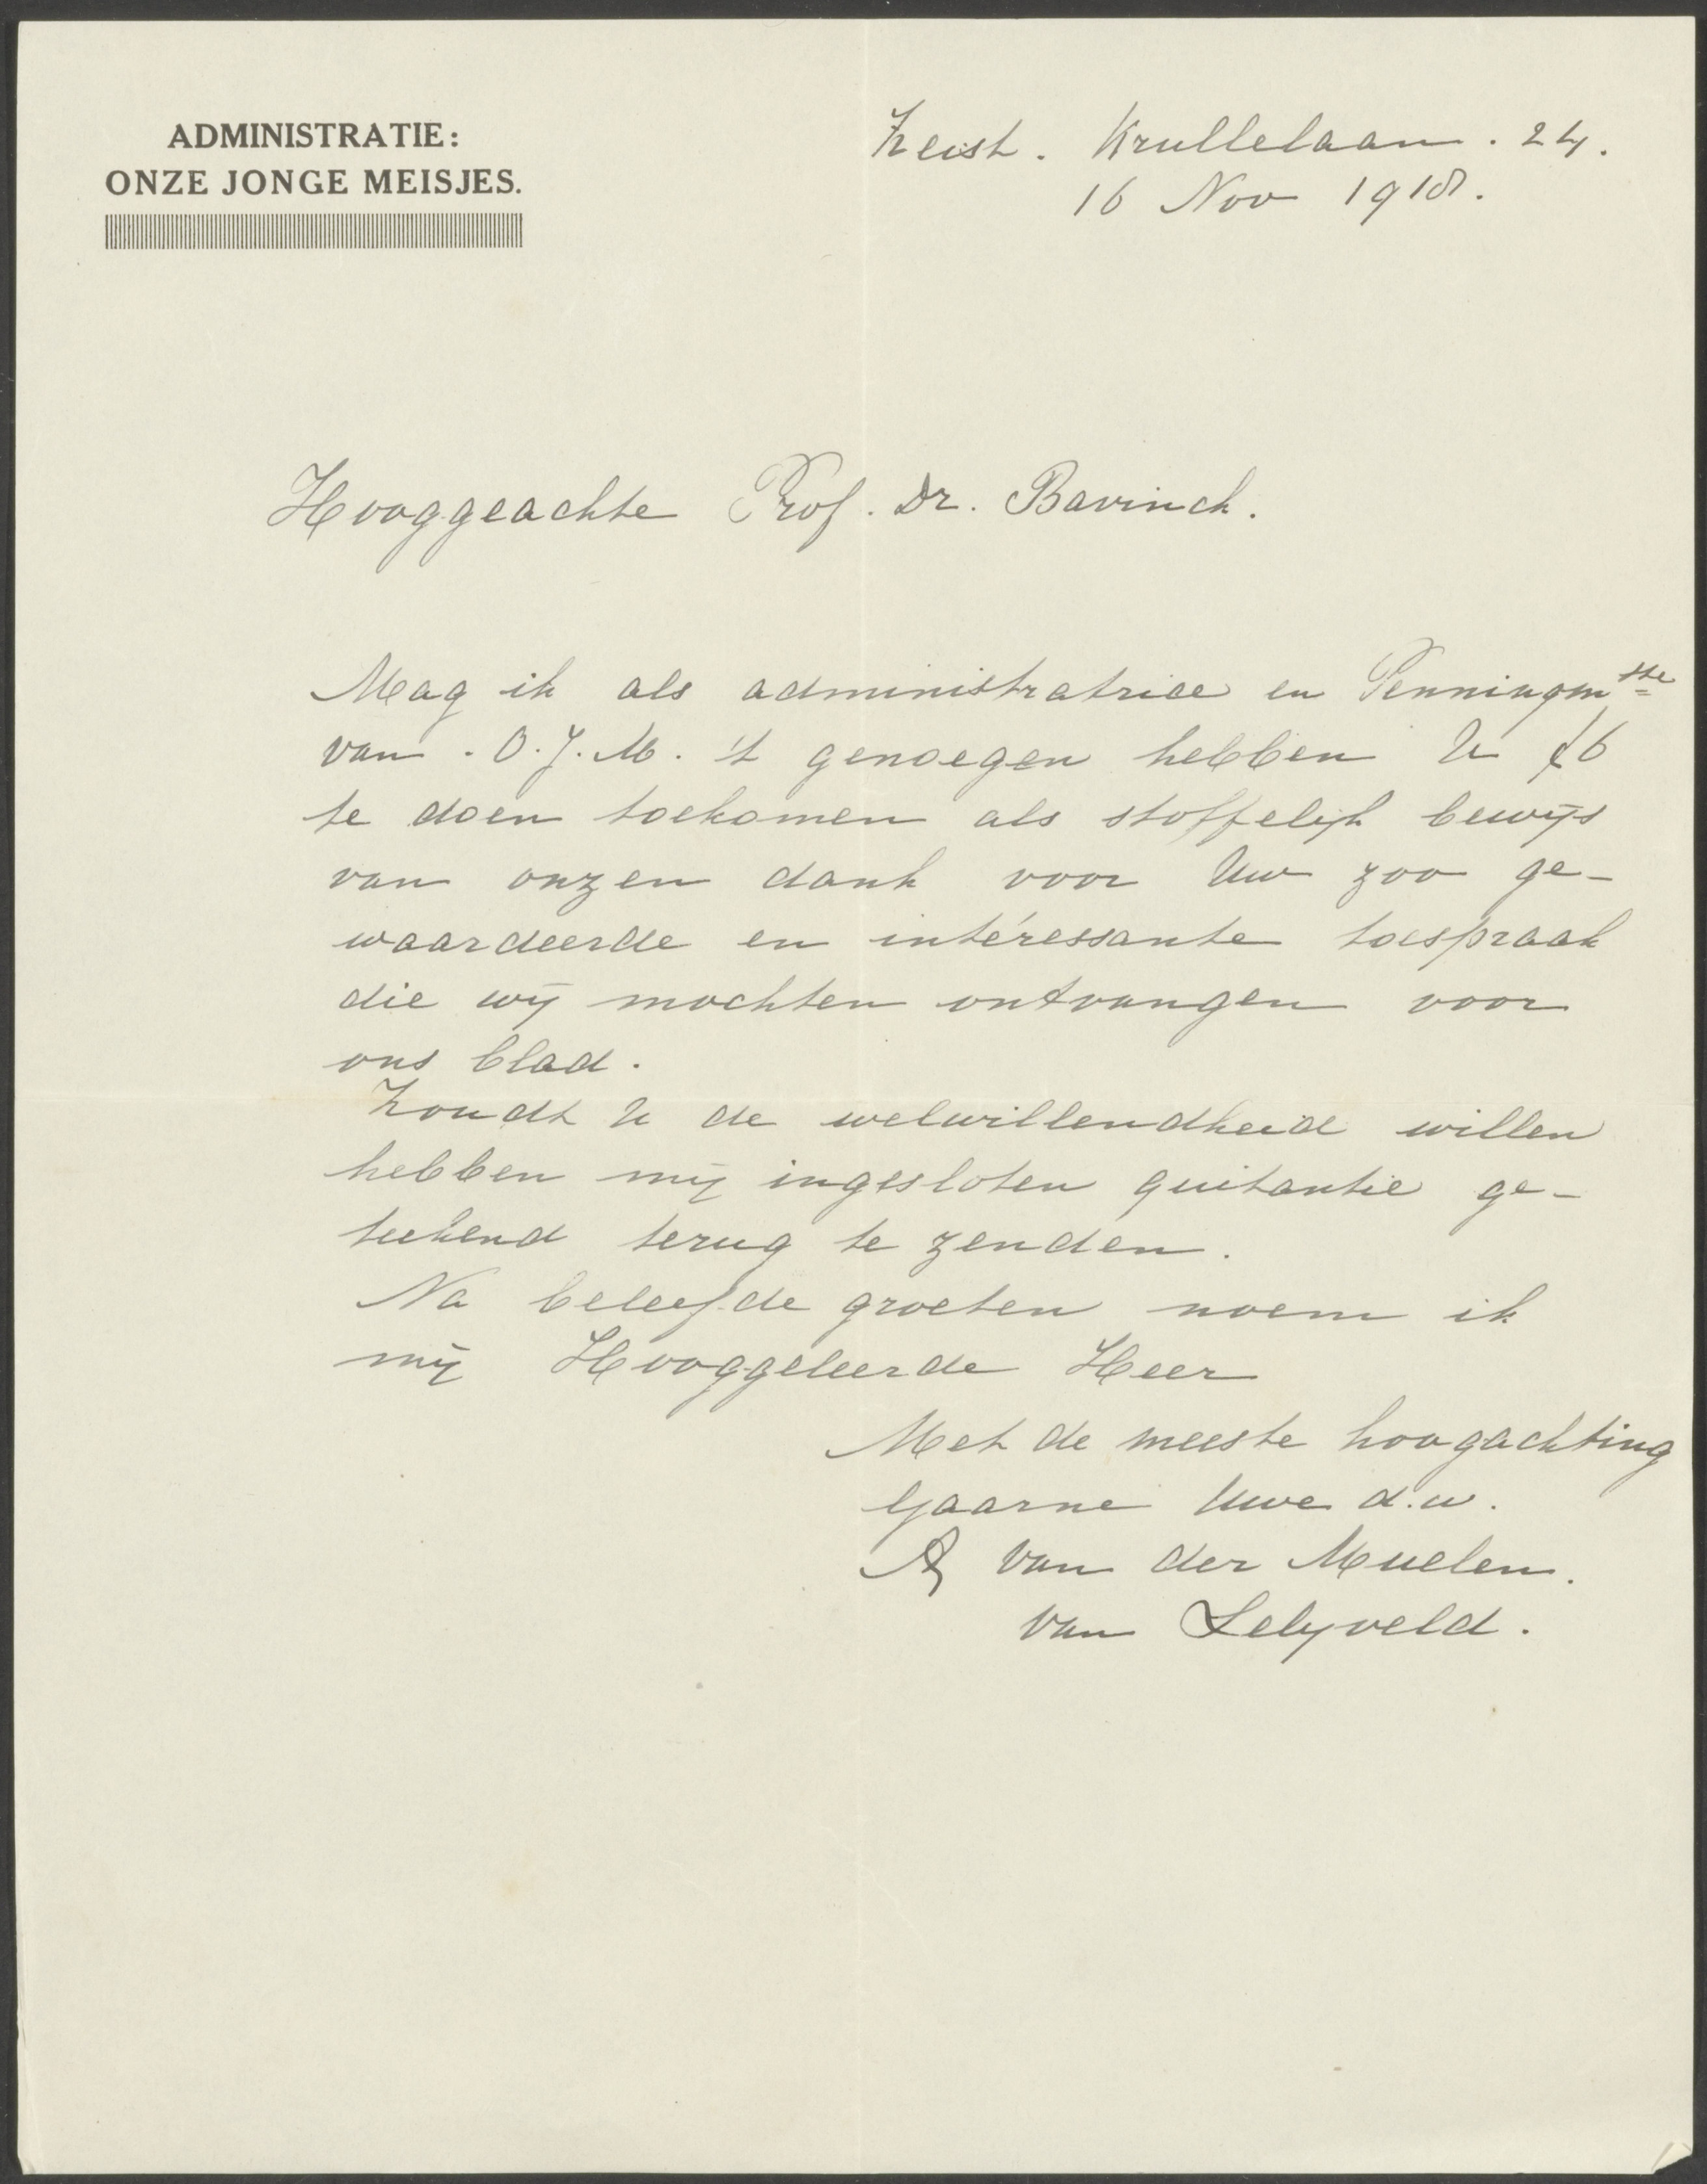 ADMINISTRATIE:
ONZE JONGE MEISJES.
Zeist. Krullelaan. 24.
16 Nov 1918.
Hooggeachte Prof. Dr. Bavinck.
Mag ik als administratrice en Penningmsste
van. O.J.M. 't genoegen hebben U f6
te doen toekomen als stoffelijk bewijs
van onzen dank voor Uw zoo ge-
waardeerde en intéressante toespraak
die wij mochten ontvangen voor
ons blad.
Zoudt U de welwillendheid willen
hebben mij ingesloten quitantie ge-
teekend terug te zenden.
Na beleefde groeten noem ik
mij Hooggeleerde Heer
Met de meeste hoogachting
Gaarne Uwe d.w.
A van der Muelen.
van Lelyveld.